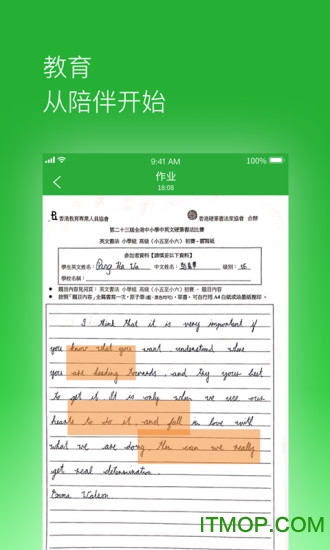 教育
从陪伴开始
9:41 AM
100%
作业
18:08
香港教育專業人員協會
香港硬筆書法家協會 合辦
第二十三屆全港中小學中英文硬筆書法比賽
英文書法 小學組 高級（小五至小六） 初賽 - 書寫紙
參加者資料【請填妥以下資料】
學生英文姓名：
中文姓名：
級別：
學校名稱：
題目內容見另頁： 英文書法 小學組 高級（小五至小六）初賽 - 題目內容
I think that it is very important if
you know what you want, understand where
you are heading towards, and try your best
to get it. It is only when we use our
hearts to do it, and fall in love with
what we are doing, then can we really
get real determination.
Emma Watson
ITMOP.com